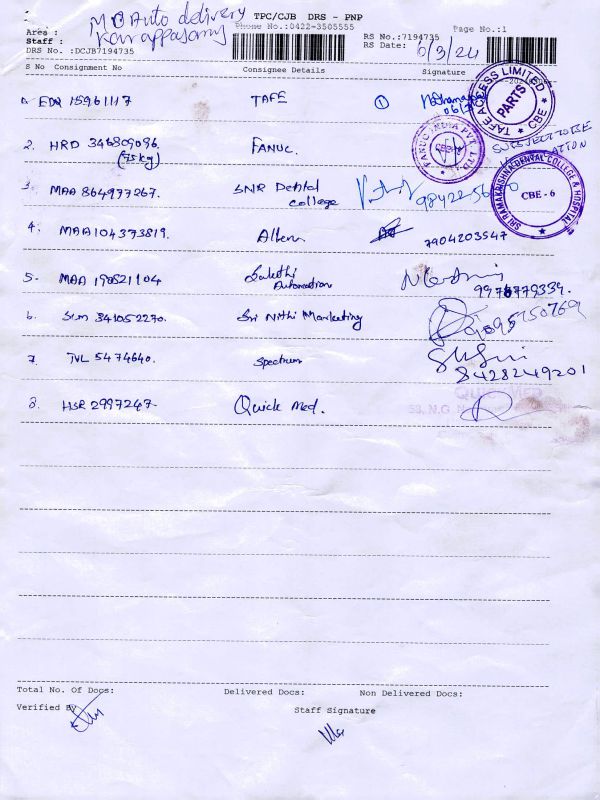 MB Auto delivery
TPC/CJB DRS - PNP
Phone No.:0422-3505555
Page No.:1
Area :
Karrappasamy
RS No.:7194735
Staff :
RS Date: 6/3/24
DRS No. :DCJB7194735
S No Consignment No Consignee Details Signature
1. EDQ 15961117 TAFE 1
TAFE ACCESS LIMITED PARTS CBE
2. HRD 346809096. FANUC.
(75kg)
FANUC INDIA PVT. LTD.
SUBJECT TO BE
3. MAA 864977267. SNR Dental
college
98422-56
SRI RAMAKRISHNA DENTAL COLLEGE & HOSPITAL
CBE - 6
4. MAA 104373819. 7904203547
5. MAA 190521104 Sakthi
Automation
9976779334.
6. SLM 341052270. Sri Nithi Marketing
7. TVL 5474640. Spectrum
8428249201
8. HSR 2997247. Quick Med.
Total No. Of Docs: Delivered Docs: Non Delivered Docs:
Verified By
Staff Signature